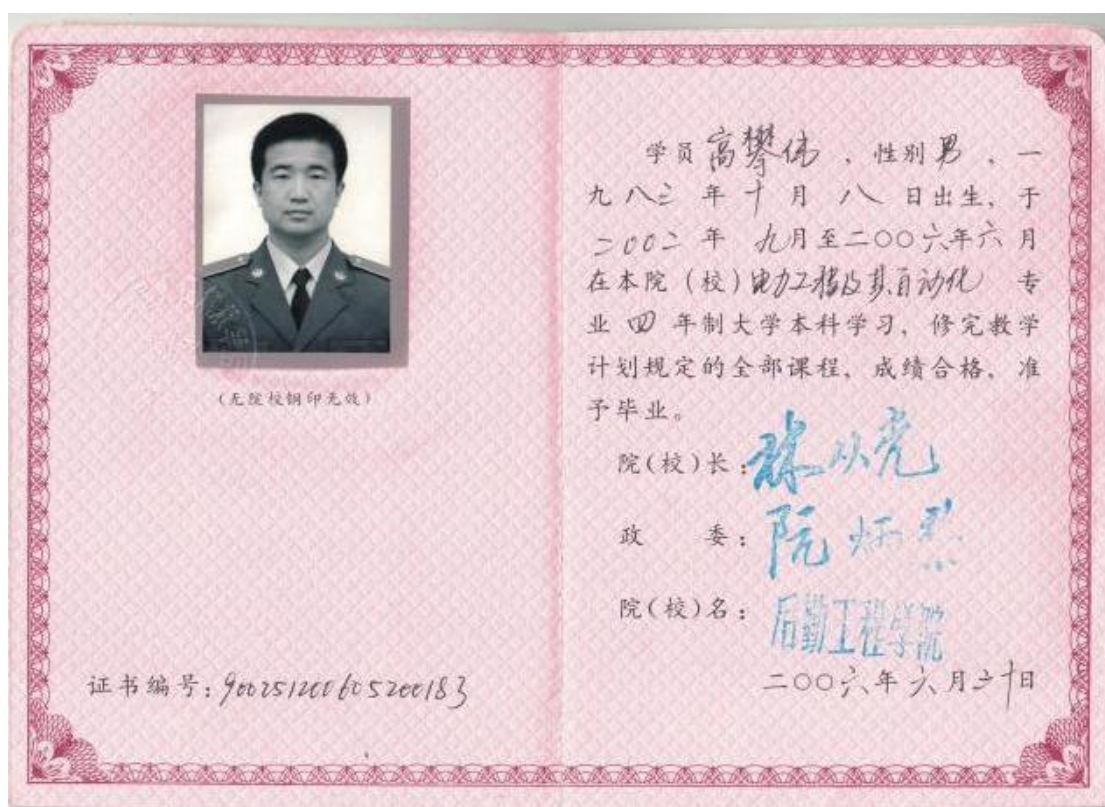 (无院校钢印无效)
证书编号:900251200605200183
学员高攀伟,性别男,一
九八三年十月八日出生,于
二00二年九月至二○○六年六月
在本院(校)电力工程及其自动化专
业四年制大学本科学习,修完教学
计划规定的全部课程,成绩合格,准
予毕业。
院(校)长:
政委:阮炳黎
院(校)名:后勤工程学院
二○○六年六月二十日